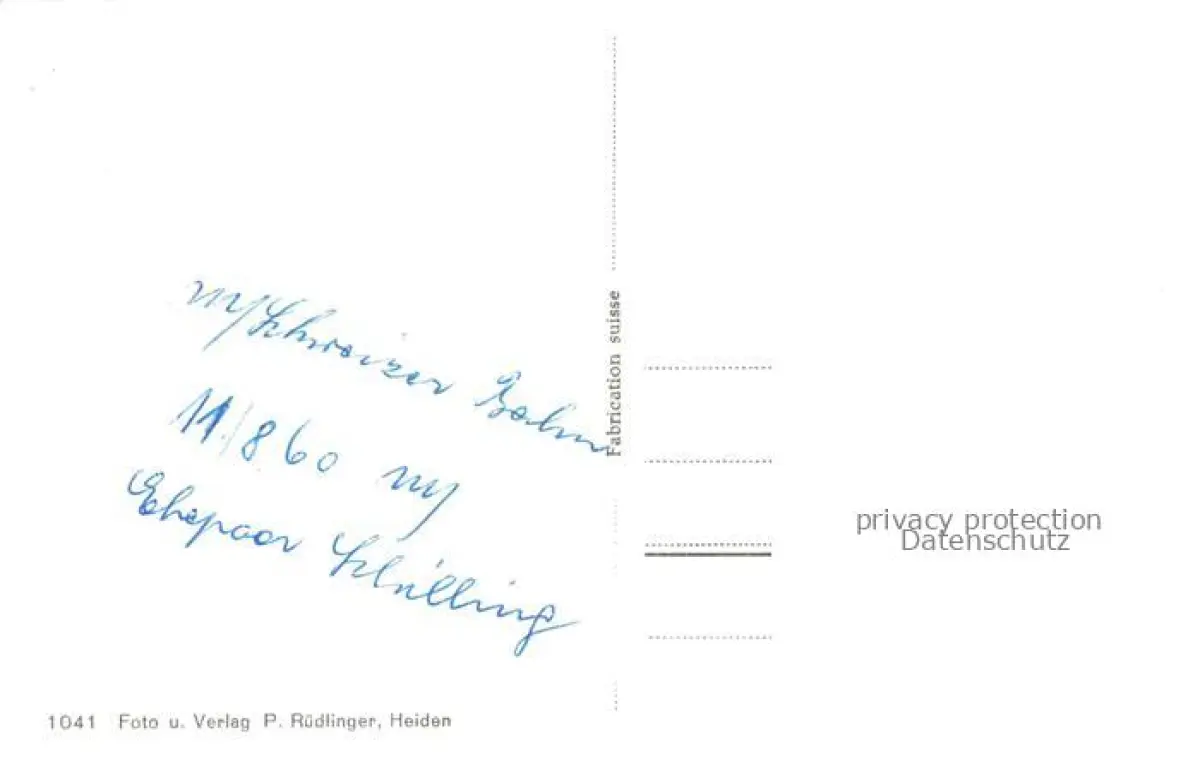 m/Schweizer Bahn
11./8.60 m/
Ehepaar Schilling
Fabrication suisse
privacy protection
Datenschutz
1041 Foto u. Verlag P. Rüdlinger, Heiden